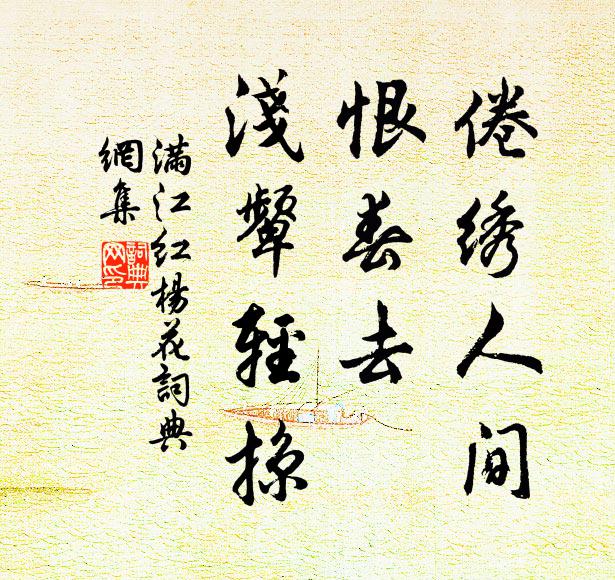 倦绣人间
恨春去
淺颦輕掠
满江红楊花詞典
網集
詞典
网